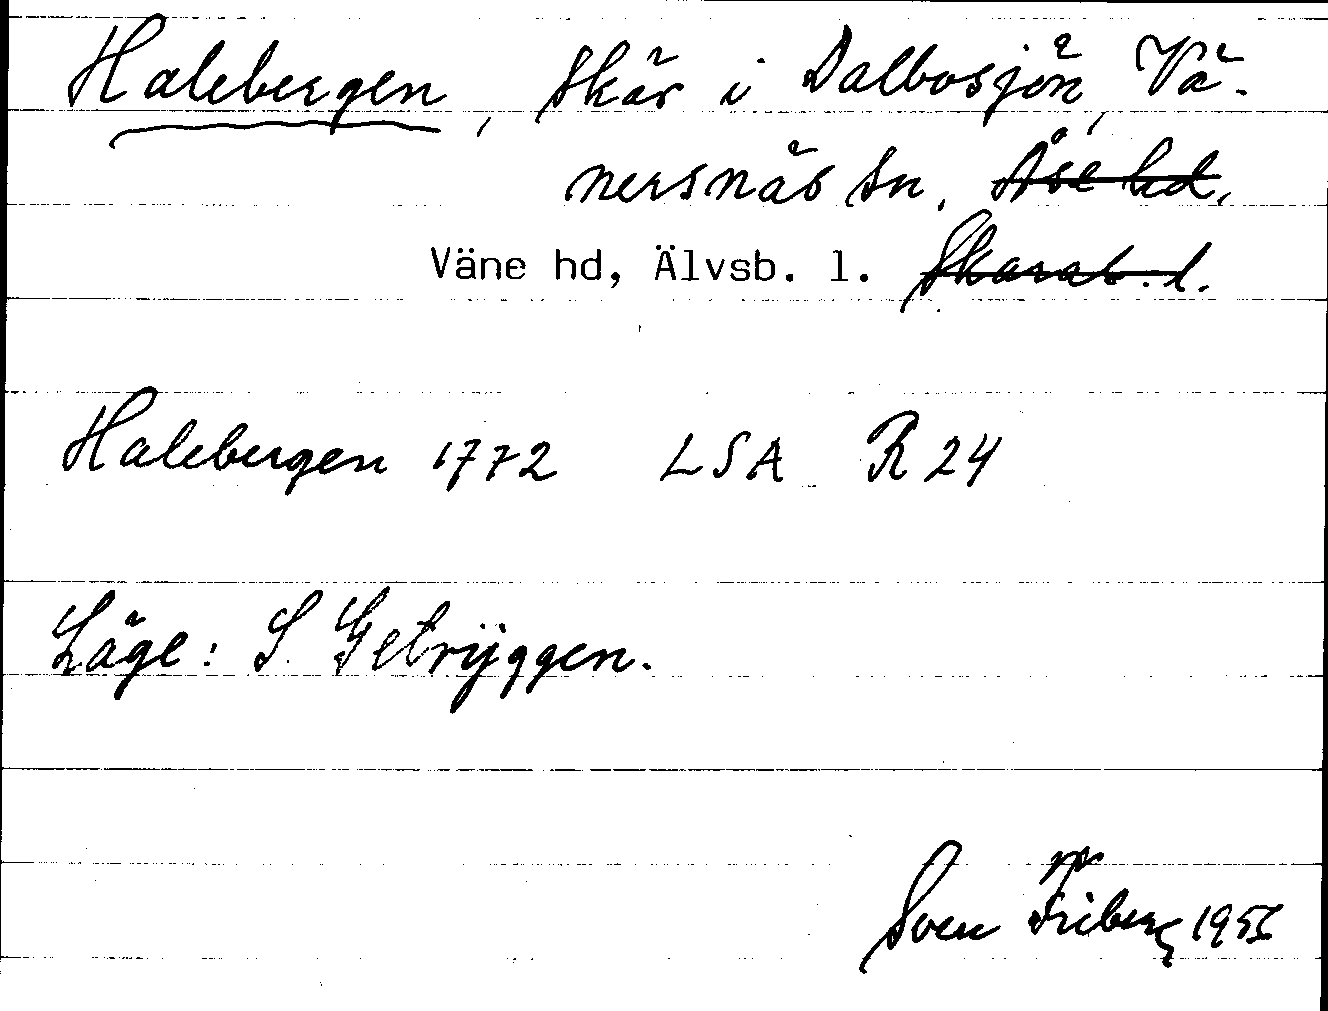 Halebergen, Skär i Dalbosjön, Vä-
nersnäs sn. Åse hd.
Väne hd, Älvsb. l. Skarab. l.
Halebergen 1772 LSA R 24
Läge: S. Getryggen.
Sven Friberg